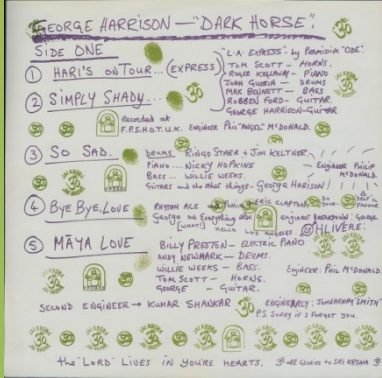 GEORGE HARRISON — "DARK HORSE".
SIDE ONE
① HARI'S ON TOUR... (EXPRESS)
"L.A. EXPRESS" - by Permission "ODE".
TOM SCOTT - HORNS.
ROGER KELLAWAY - PIANO
JOHN GUERIN - DRUMS
MAX BENNETT - BASS
ROBBEN FORD - GUITAR.
GEORGE HARRISON - GUITAR
② SIMPLY SHADY...
Recorded at
F.P.S.H.O.T. U.K. ENGINEER PHIL "ANGEL" McDONALD.
③ SO SAD.
DRUMS RINGO STARR + JIM KELTNER
PIANO... NICKY HOPKINS
BASS... WILLIE WEEKS.
GUITARS and the other things - GEORGE HARISON
Engineer PHILIP McDONALD.
④ BYE BYE, LOVE
RHYTHM ACE
ERIC CLAPTON
George on Everything else
[WHAT!]
HELLO LOS ANGELES
ENGINEER
OHLIVERE:
⑤ MĀYA LOVE
BILLY PRESTON - ELECTRIC PIANO
ANDY NEWMARK - DRUMS.
WILLIE WEEKS - BASS.
TOM SCOTT - HORNS.
GEORGE - GUITAR.
ENGINEER: PHIL McDONALD
SECOND ENGINEER → KUMAR SHANKAR
P.S. SORRY if I FORGET YOU.
the 'LORD' LIVES IN YOU'RE HEARTS.
all Glories to SRI KRSNA